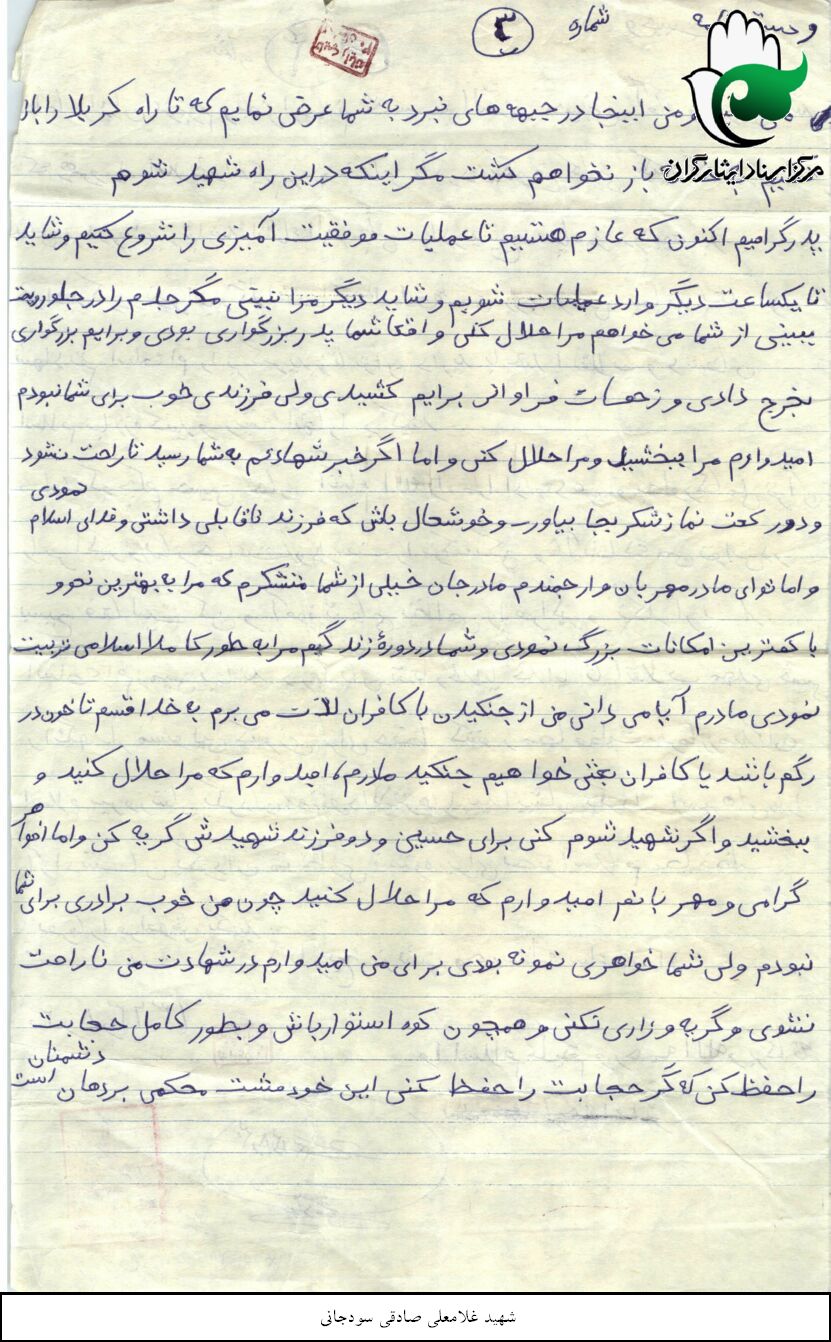 شماره ۳
و من اینجا در جبهه های نبرد به شما عرض نمایم که تا راه کربلا را باز
باز نخواهم گشت مگر اینکه در این راه شهید شوم
پدر گرامیم اکنون که عازم هستیم تا عملیات موفقیت آمیزی را شروع کنیم و شاید
تا یکساعت دیگر وارد عملیات شویم و شاید دیگر مرا نبینی مگر جلدم را در جلو رویت
ببینی از شما می خواهم مرا حلال کنی واقعا شما پدر بزرگواری بودی و برایم بزرگواری
بخرج دادی و زحمات فراوانی برایم کشیدی ولی فرزندی خوب برای شما نبودم
امیدوارم مرا ببخشید و مرا حلال کنی و اما اگر خبر شهادتم به شما رسید ناراحت نشود
و دو رکعت نماز شکر بجا بیاور و خوشحال باش که فرزند ناقابلی داشتی و فدای اسلام نمودی
و اما توای مادر مهربان و ارجمندم مادر جان خیلی از شما متشکرم که مرا به بهترین نحو و
با کمترین امکانات بزرگ نمودی و شما در دورهٔ زندگیم مرا به طور کاملا اسلامی تربیت
نمودی مادرم آیا می دانی من از جنگیدن با کافران لذت می برم به خدا قسم تا خون در
رگم باشد با کافران بعثی خواهیم جنگید مادرم، امیدوارم که مرا حلال کنید و
ببخشید و اگر شهید شوم کنی برای حسین و دو فرزند شهیدش گریه کن و اما خواهر
گرامی و مهربانم امیدوارم که مرا حلال کنید چون من خوب برادری برای شما
نبودم ولی شما خواهری نمونه بودی برای من امیدوارم در شهادت من ناراحت
نشوی و گریه و زاری نکنی و همچون کوه استوار باش و بطور کامل حجابت
را حفظ کن که گر حجابت را حفظ کنی این خود مشت محکمی بر دهان دشمنان است
مرکز اسناد ایثارگران
شهید غلامعلی صادقی سودجانی